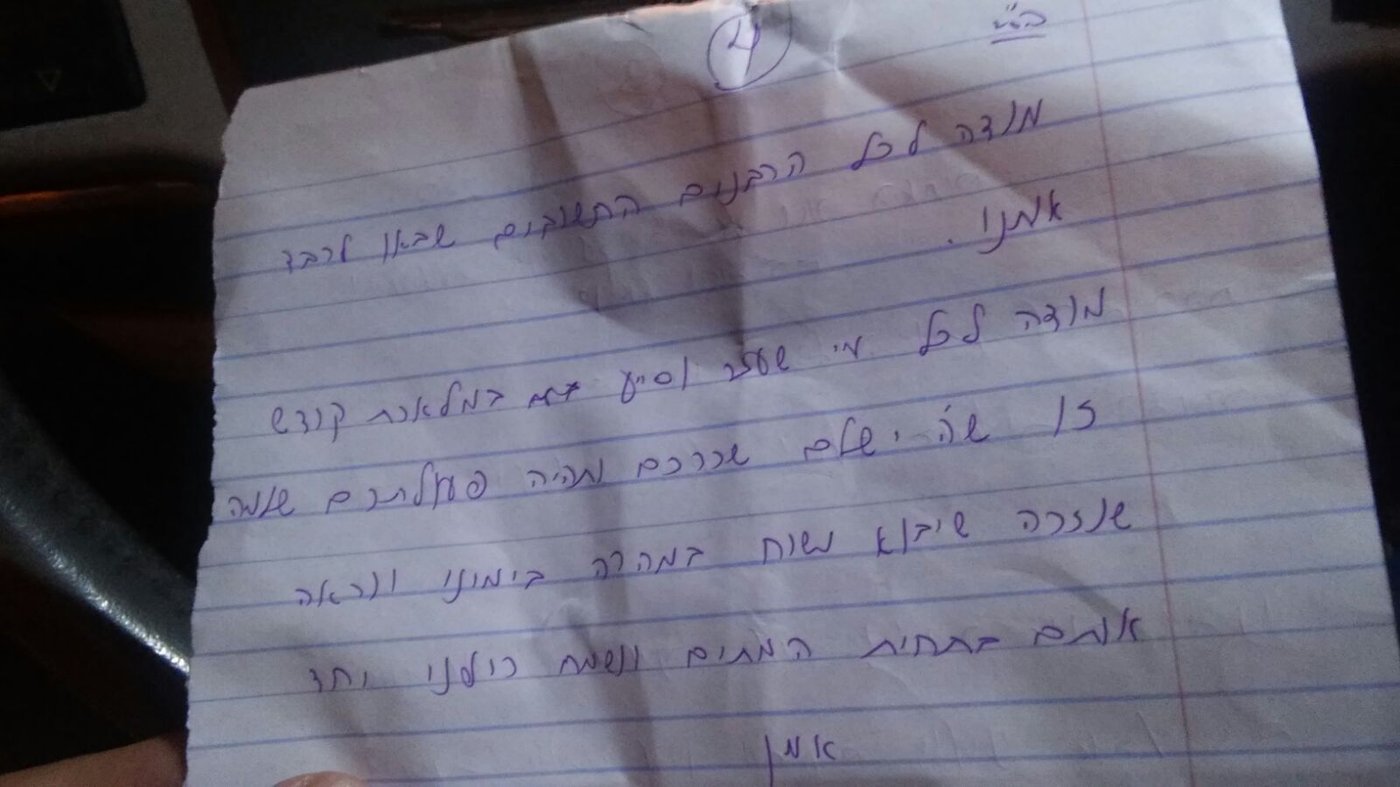 בס"ד
4
מודה לכל הרבנים החשובים שבאו לכבד
אותנו.
מודה לכל מי שעזר וסייע במלאכת קודש
זו שה' ישלם שכרכם ותהיה פעולתכם שלמה
שנזכה שיבוא משיח במהרה בימינו ונראה
אותם בתחית המתים ונשמח כולנו יחד
אמן